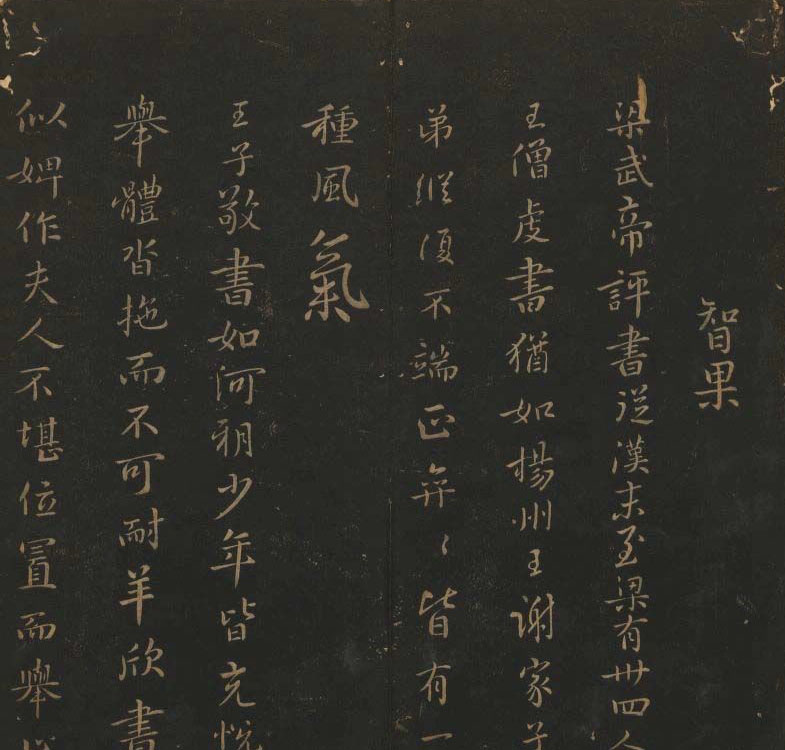 智果
梁武帝評書從漢末至梁有卅四人
王僧虔書猶如揚州王謝家子
弟縱復不端正奕〻皆有一
種風氣
王子敬書如河朔少年皆充悅
舉體沓拖而不可耐羊欣書
似婢作夫人不堪位置而舉